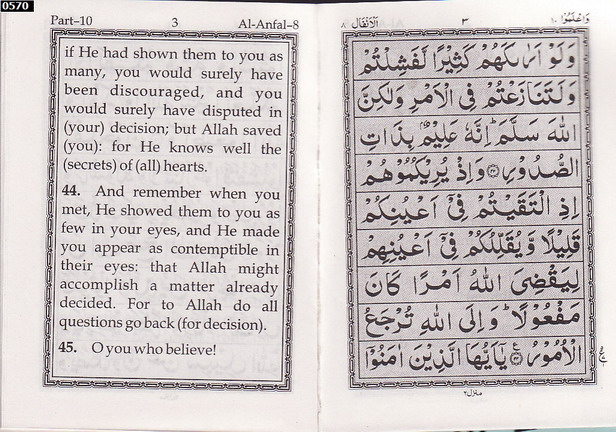 0570
Part-10 3 Al-Anfal-8
if He had shown them to you as
many, you would surely have
been discouraged, and you
would surely have disputed in
(your) decision; but Allah saved
(you): for He knows well the
(secrets) of (all) hearts.
44. And remember when you
met, He showed them to you as
few in your eyes, and He made
you appear as contemptible in
their eyes: that Allah might
accomplish a matter already
decided. For to Allah do all
questions go back (for decision).
45. O you who believe!
وَاعْلَمُوْٓا ١٠ ٣ اَلْاَنْفَال ٨
وَلَوْ اَرٰىكَهُمْ كَثِيْرًا لَّفَشِلْتُمْ
وَلَتَنَازَعْتُمْ فِى الْاَمْرِ وَلٰكِنَّ
اللّٰهَ سَلَّمَ ؕ اِنَّهٗ عَلِيْمٌۢ بِذَاتِ
الصُّدُوْرِ ﴿٤٣﴾ وَاِذْ يُرِيْكُمُوْهُمْ
اِذِ الْتَقَيْتُمْ فِىْٓ اَعْيُنِكُمْ
قَلِيْلًا وَّيُقَلِّلُكُمْ فِىْٓ اَعْيُنِهِمْ
لِيَقْضِىَ اللّٰهُ اَمْرًا كَانَ
مَفْعُوْلًا ؕ وَاِلَى اللّٰهِ تُرْجَعُ
الْاُمُوْرُ ﴿٤٤﴾ يٰٓاَيُّهَا الَّذِيْنَ اٰمَنُوْٓا
منزل ٢